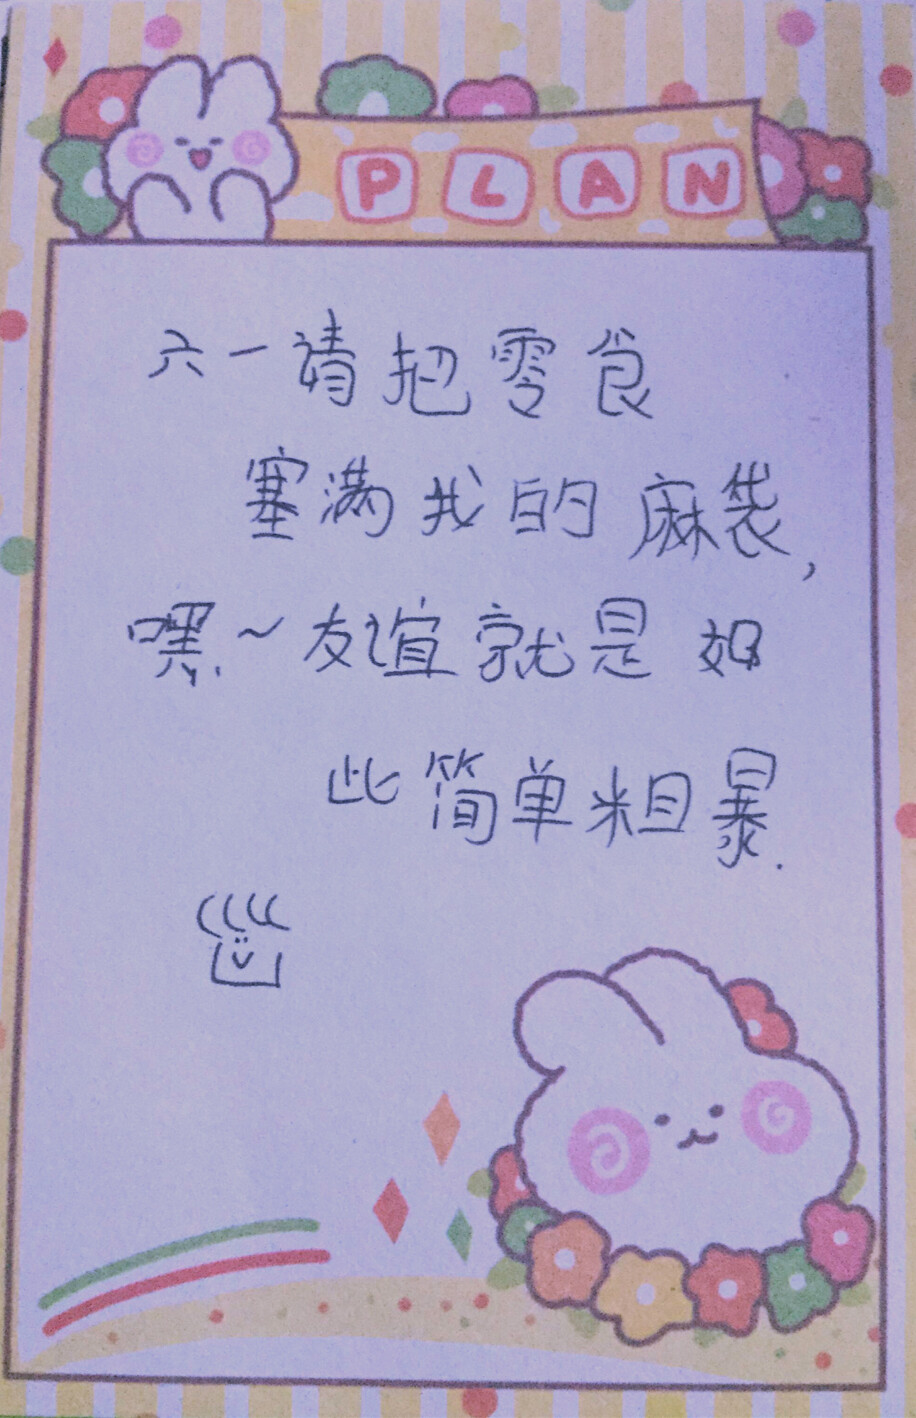 PLAN
六一请把零食
塞满我的麻袋,
嘿~友谊就是如
此简单粗暴.